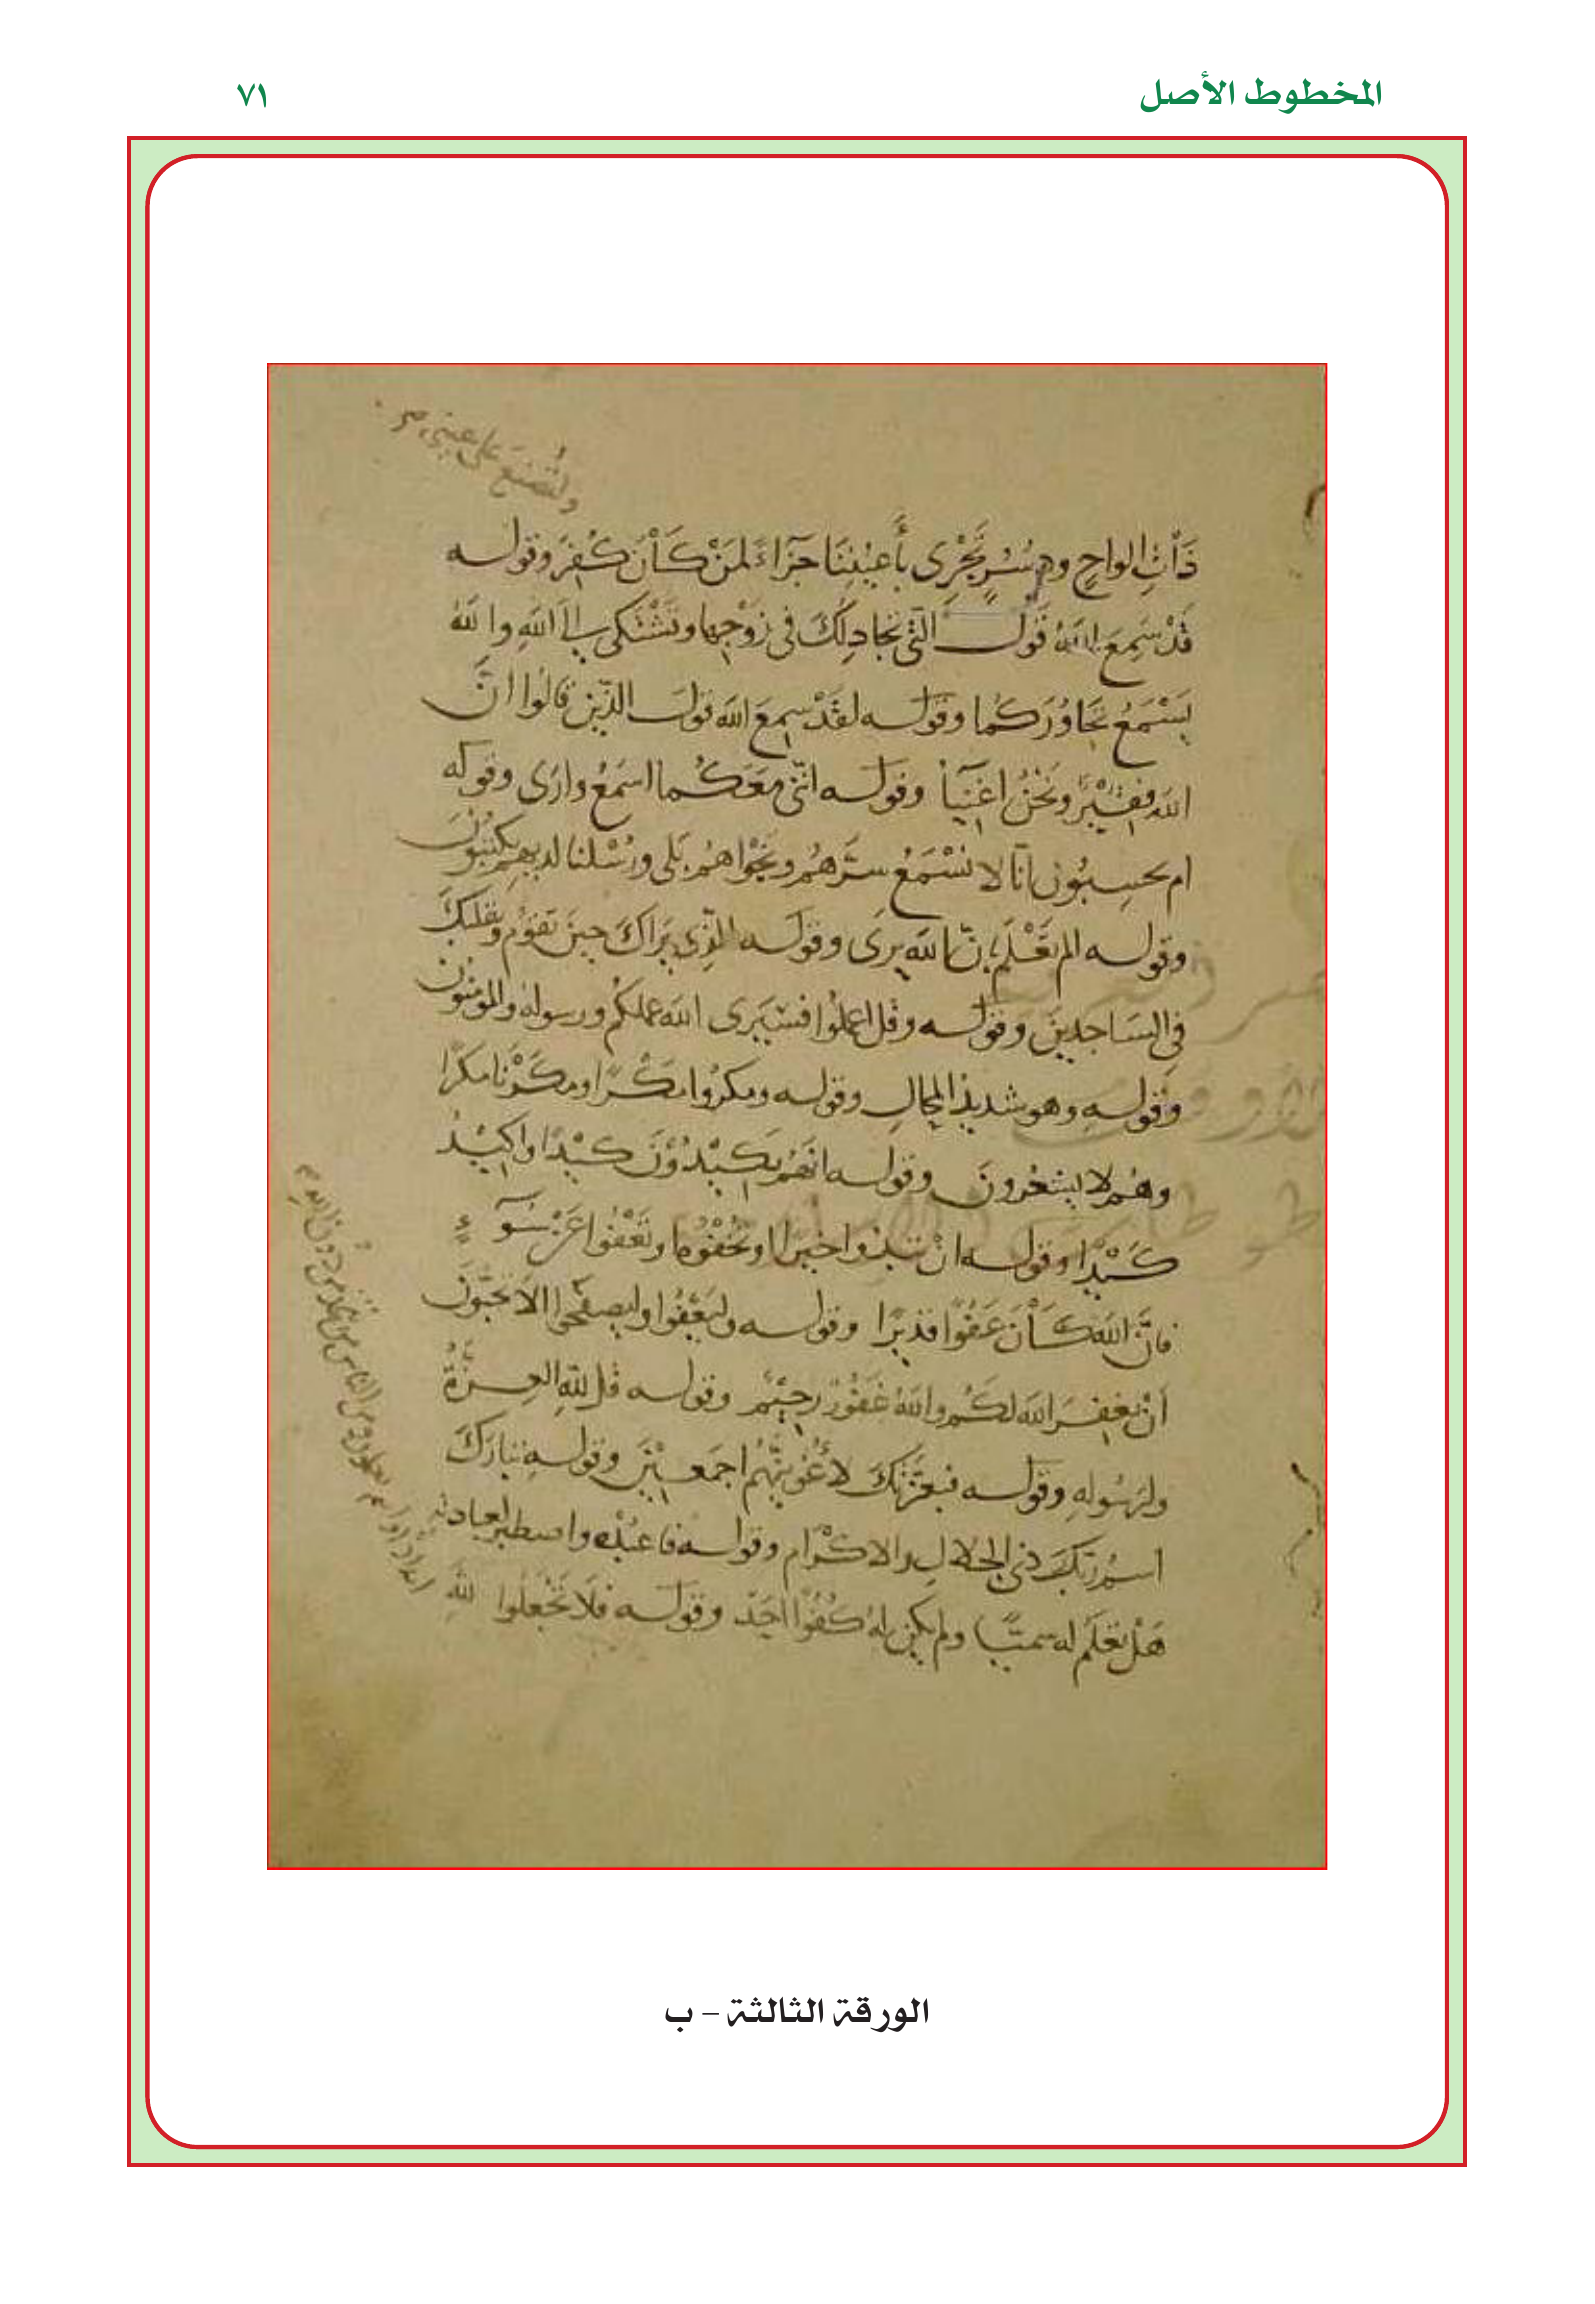 المخطوط الأصل
٧١
ولتصنع على عيني صح
ذَاتِ الواحٍ ودُسُرٍ تَجْرِى بأَعيُنِنَا جَزَاءً لمَنْ كَانَ كُفِرَ وقوله
قَدْ سَمِعَ اللهُ قَولَ التى تجادِلُكَ فى زَوْجِها وتَشْتَكى الى اللهِ واللهُ
يَسْمَعُ تَحَاوُرَكُما وقوله لقَدْ سمِعَ الله قولَ الذّين قالُوا انَّ
الله فقِيْرٌ ونَحْنُ اغنيَآ وقوله انّنى معَكُما اسمَعُ وارَى وقوله
ام يحسِبُون انّا لا نسْمَعُ سرَّهُم ونجْواهُم بَلى ورُسُلنا لديهِم يكتبُونَ
وقوله الم يَعْلَم بانّ الله يرَى وقوله الّذِى يَراكَ حينَ تقوُم وتقلبَكَ
فى السَاجدينَ وقوله وقل اعملُوا فسَيَرى الله عملكُم ورسوله والمومنون
وقوله وهو شديدُ المحالِ وقوله ومكرُوا مَكْرًا ومكَرْنَا مكرًا
وهُم لا يشعُرونَ وقوله انهُم يَكيْدُوْنَ كيْدًا واكِيْدُ
كَيْدًا وقوله انْ تبدُوا خيرًا اوتُخفُوْهُ او تَعْفُوا عَنْ سُوٓءٍ
فانَّ الله كَانَ عَفُوًّا قديرًا وقوله وليَعْفُوا وليصفحُوا الاَ تحبّونَ
اَنْ يغفِرَ الله لكُم واللهُ غَفُوْرٌ رحِيْم وقوله قل للهِ العِزّةُ
ولرسُولهِ وقوله فبعزّتِكَ لاُغْوِيَنّهُم اجمَعِيْنَ وقوله تبارَكَ
اسمُ ربّكَ ذى الجلالِ والاكْرَام وقوله فاعبُدْه واصطبر لعبادته
هَلْ تعلَم له سميًّا ولم يكن لهُ كُفُوًا احَد وقوله فلَا تَجْعَلُوا للهِ
اندادًا وانتم تعلمون ومن الناس من يتخذ من دون الله
الورقة الثالثة – ب